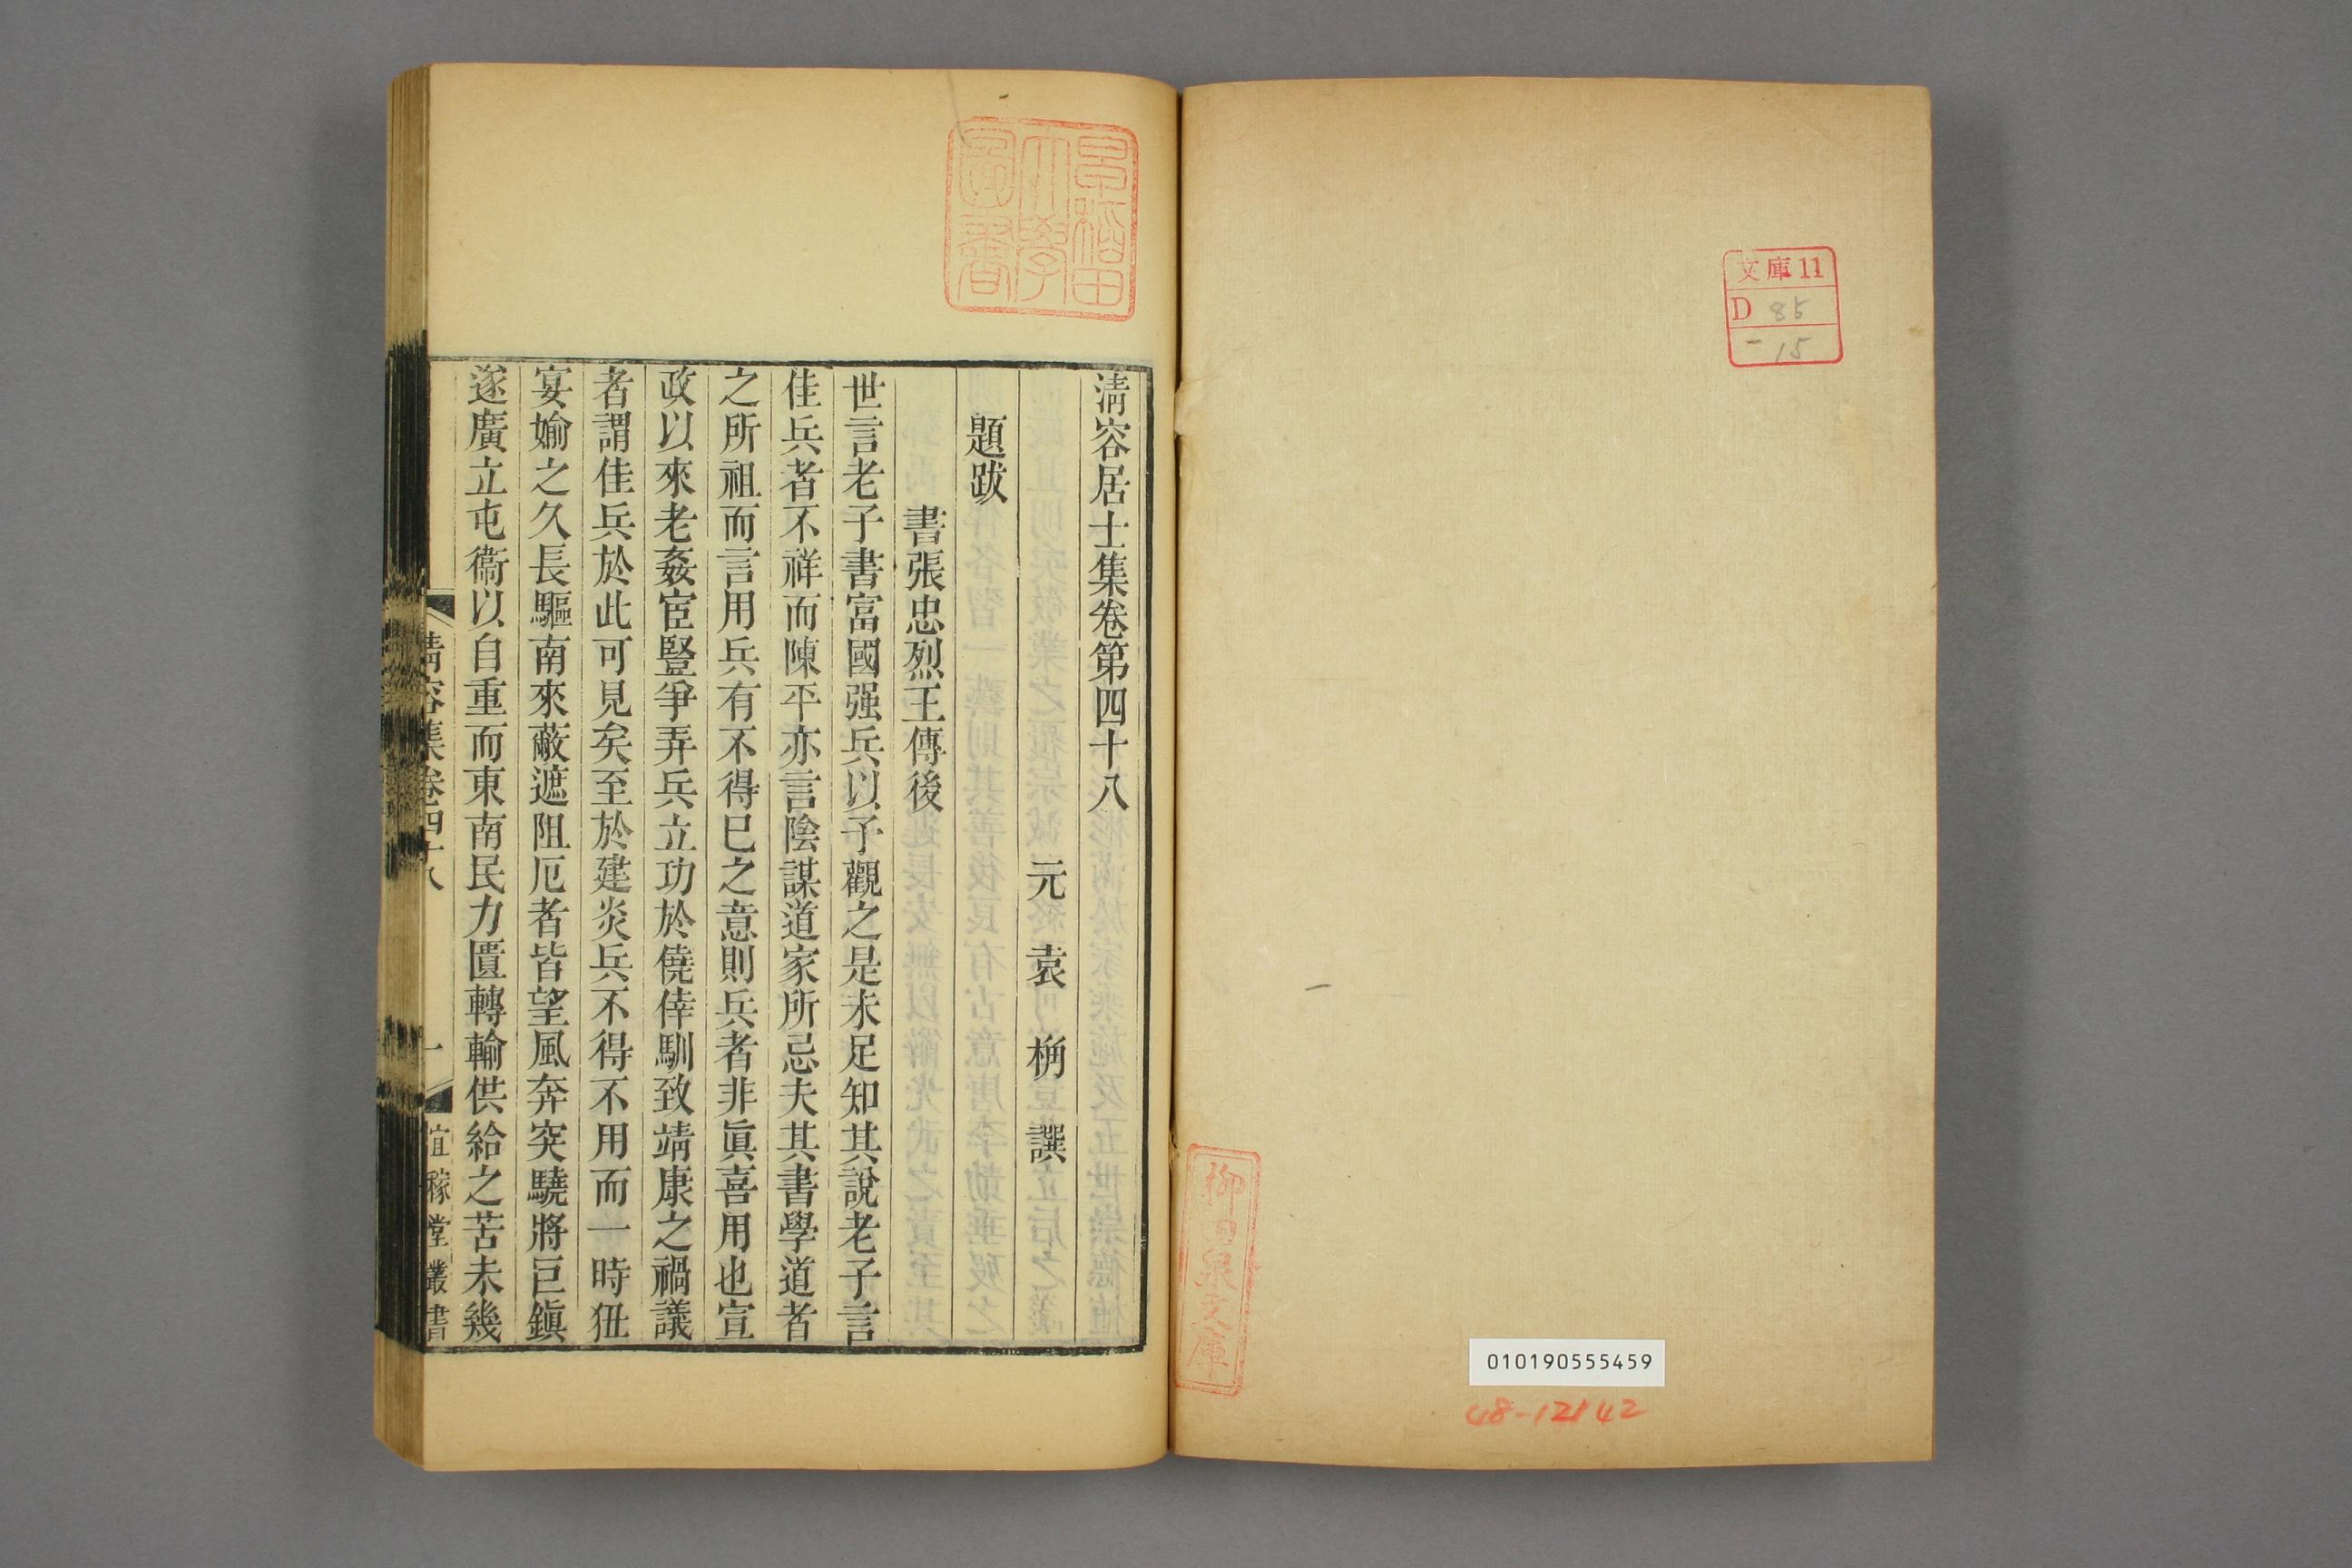 文庫11
D 85
-15
柳田泉文庫
010190555459
48-12142
早稲田
大學
圖書
淸容居士集卷第四十八
元 袁 桷 譔
題跋
書張忠烈王傳後
世言老子書富國强兵以予觀之是未足知其說老子言
佳兵者不祥而陳平亦言陰謀道家所忌夫其書學道者
之所祖而言用兵有不得已之意則兵者非眞喜用也宣
政以來老姦宦豎爭弄兵立功於僥倖馴致靖康之禍議
者謂佳兵於此可見矣至於建炎兵不得不用而一時狃
宴婾之久長驅南來蔽遮阻厄者皆望風奔突驍將巨鎭
遂廣立屯衞以自重而東南民力匱轉輸供給之苦未幾
淸容集卷四十八
一
宜稼堂叢書